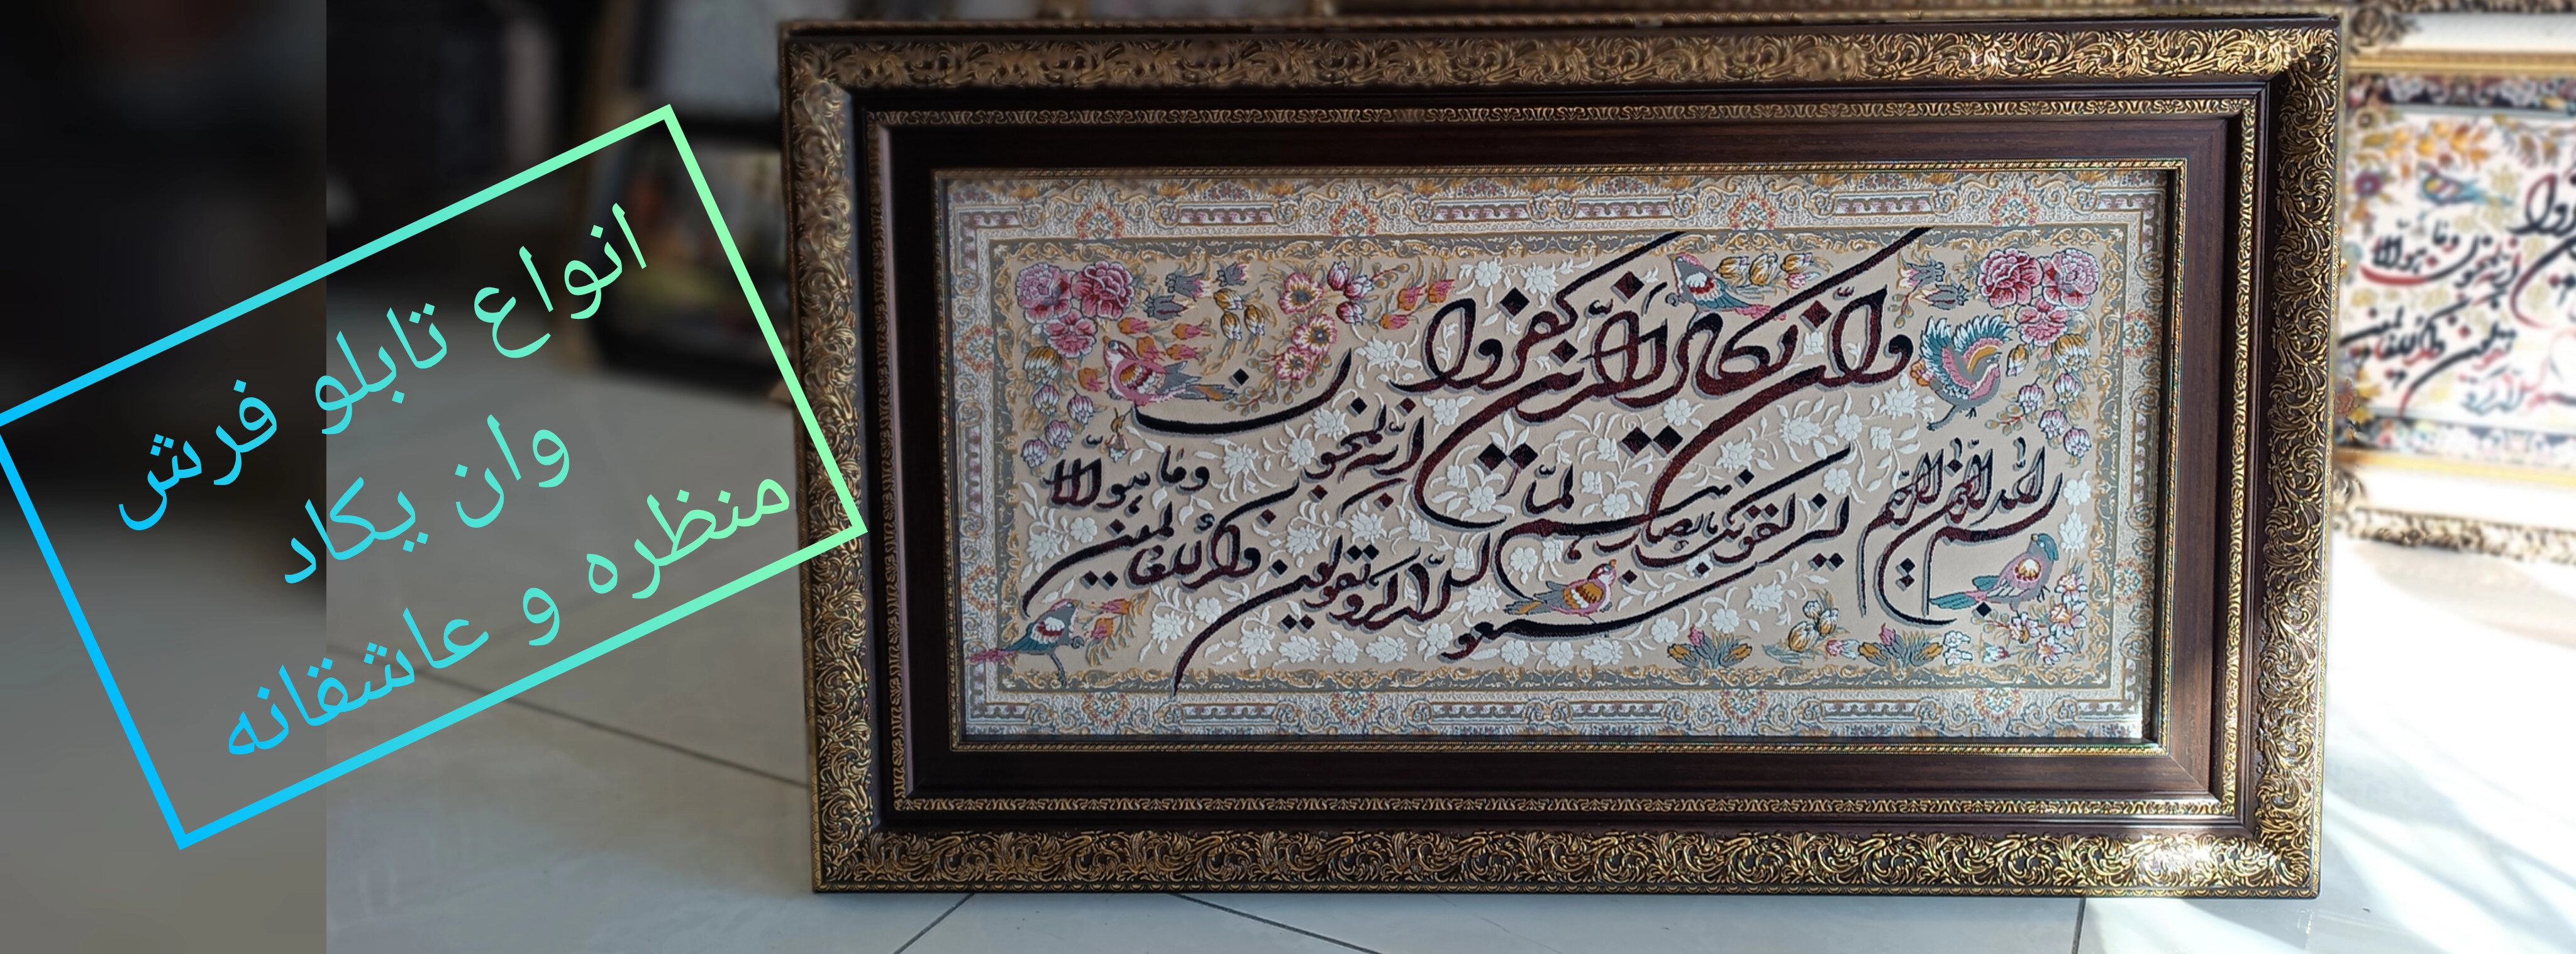 انواع تابلو فرش
وان یکاد
منظره و عاشقانه
وان یکاد الذین کفروا
بسم الله الرحمن الرحیم
لیزلقونک بابصارهم لما
سمعوا
الذکر و یقولون
انه لمجنون
وما هو الا
ذکر للعالمین